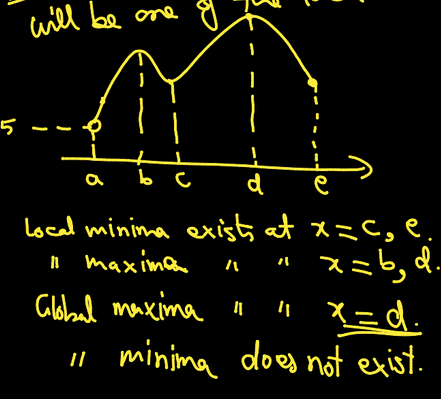 will be one of the
5
a b c d e
Local minima exists at x = c, e.
" maxima " " x = b, d.
Global maxima " " x = d.
" minima does not exist.